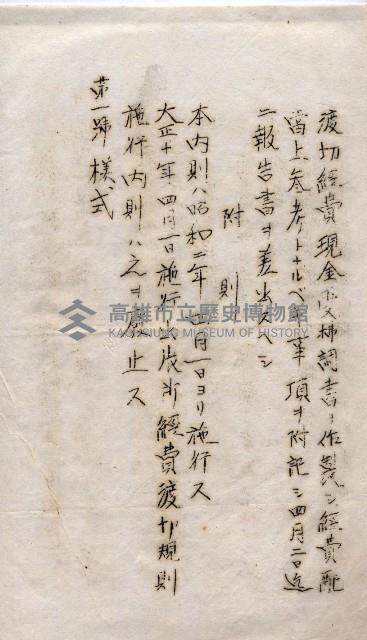 渡切經費現金受拂調書ヲ作製シ經費配
當上參考トナルベキ事項ヲ附記シ四月二日迄
ニ報告書ヲ差出スベシ
附則
本內則ハ昭和二年四月一日ヨリ施行ス
大正十年四月一日施行 經費渡切規則
施行內則ハ之ヲ廢止ス
第一號樣式
高雄市立歷史博物館
KAOHSIUNG MUSEUM OF HISTORY